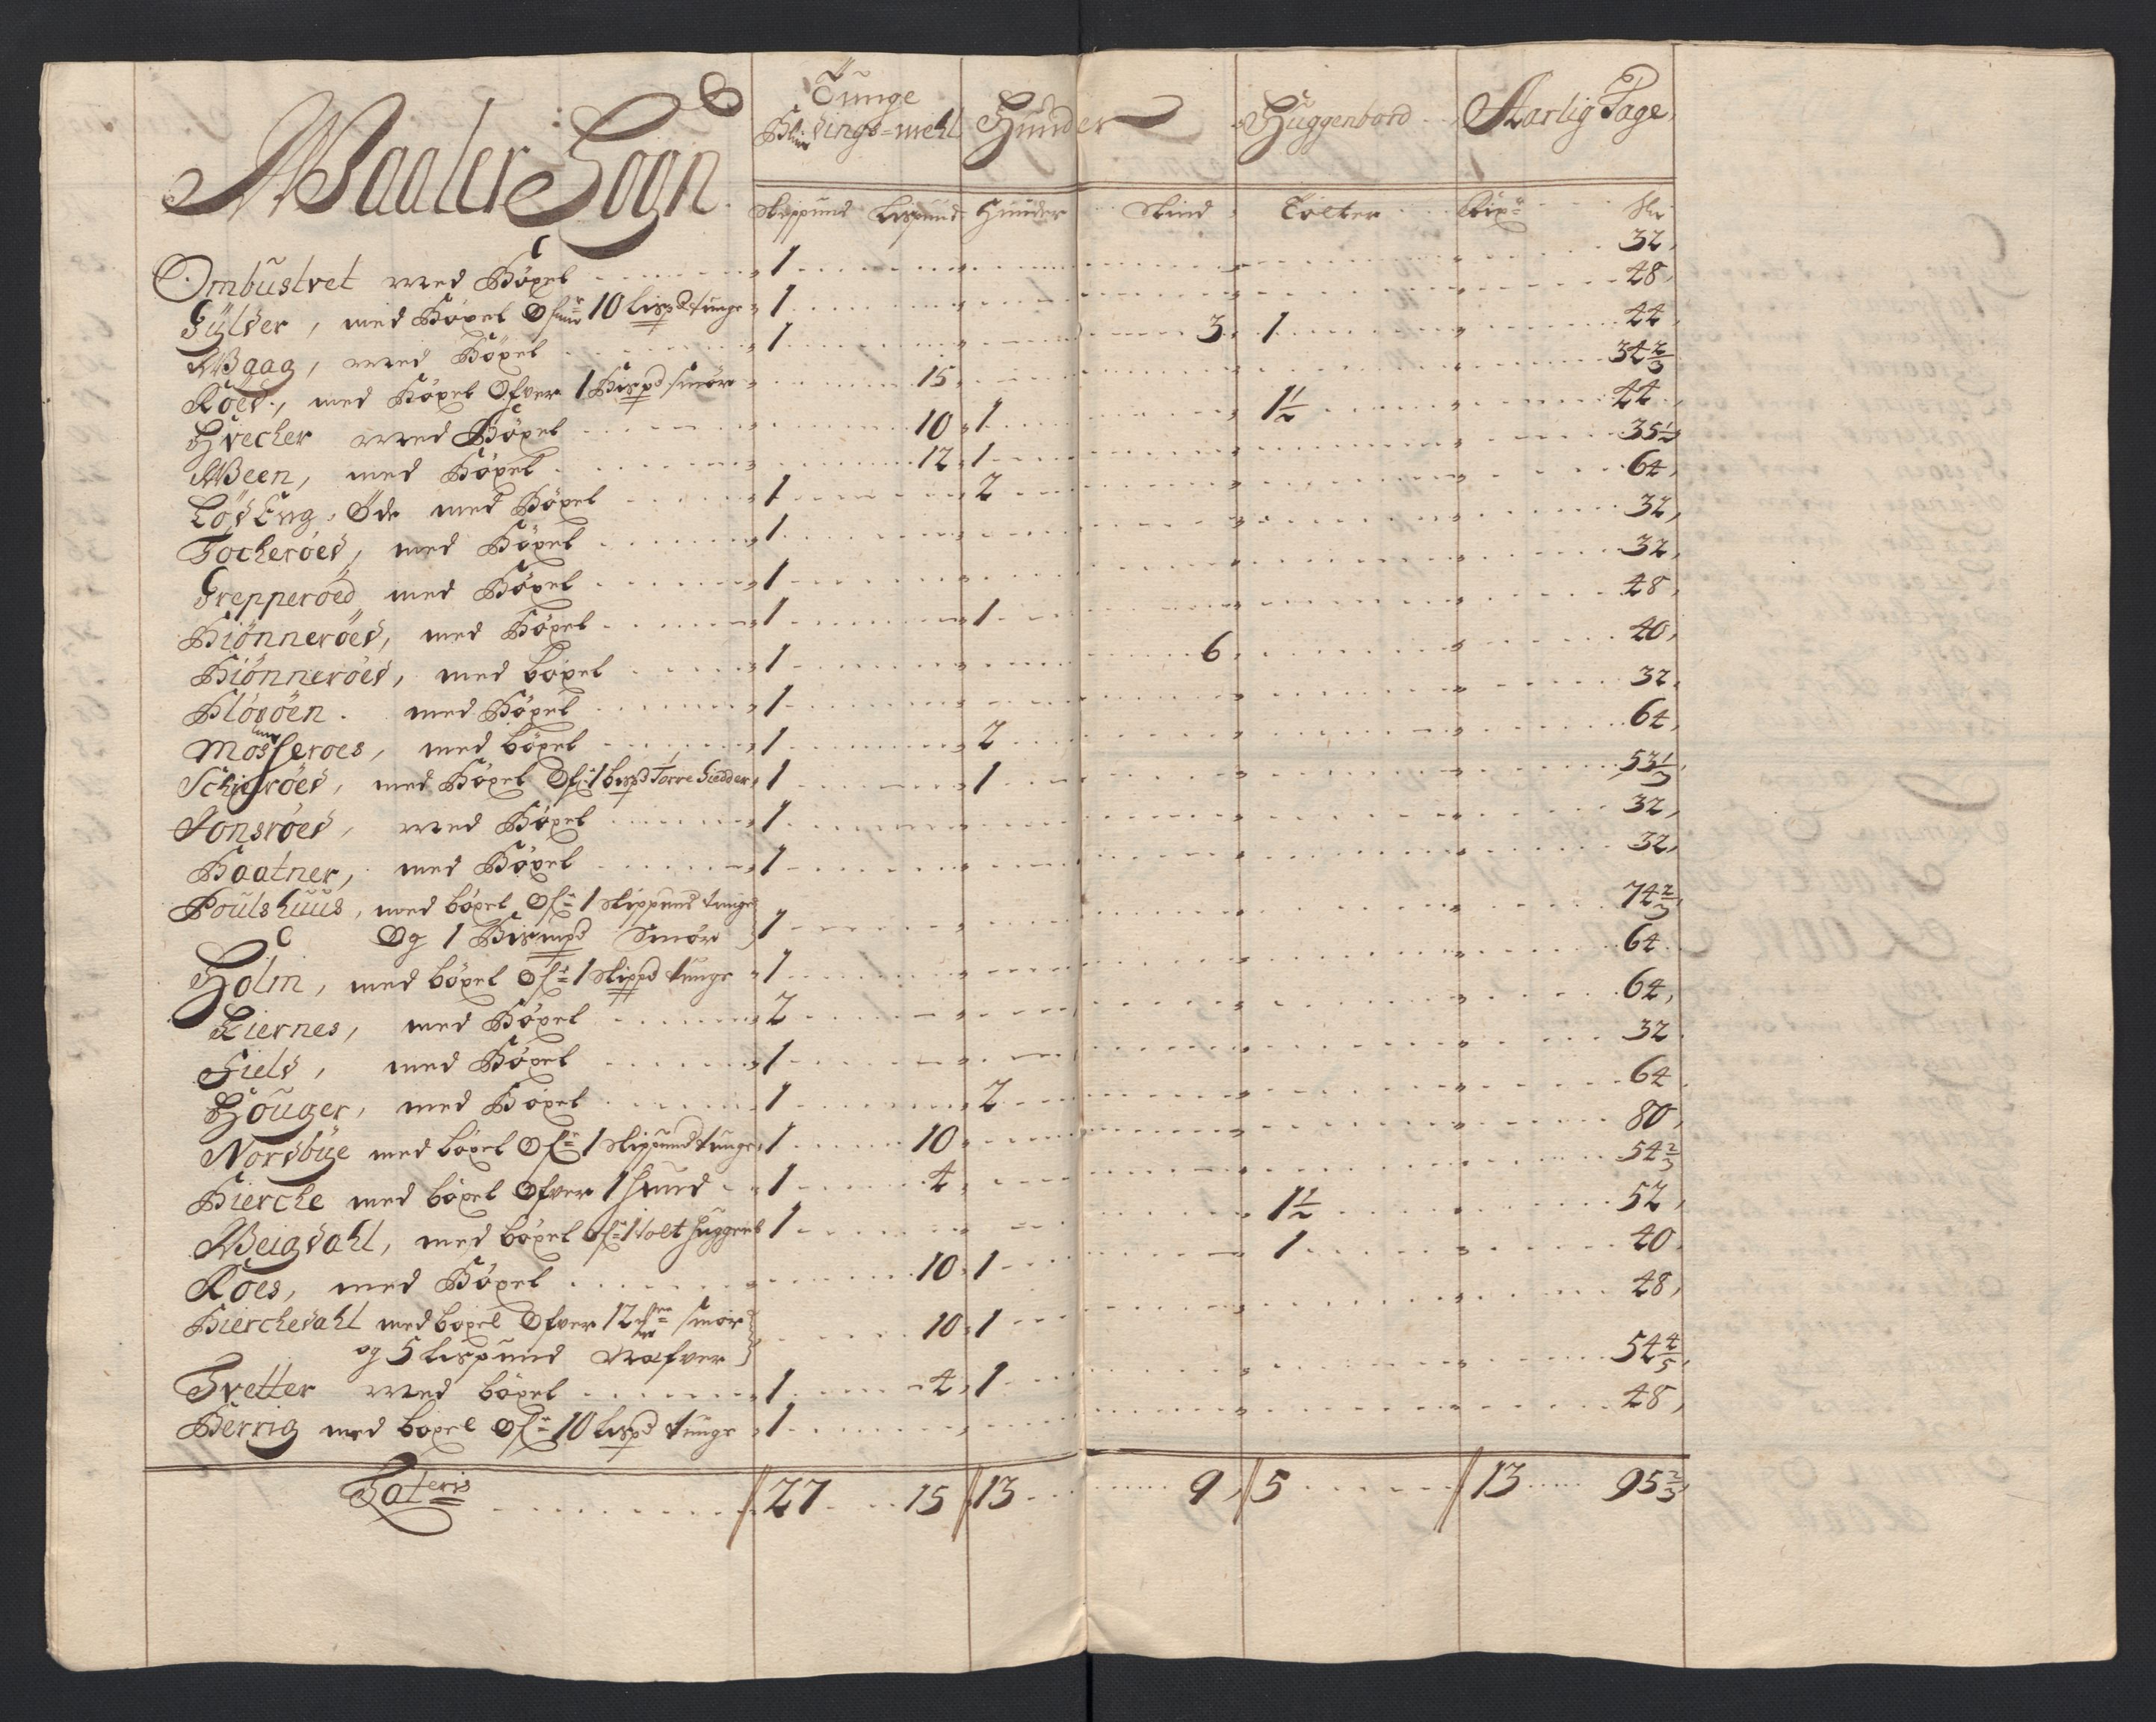 Waaler Sogn
Tunge Blandings=mehl Hunder Huggenbord Aarlig Tage
Skippund Lispund Hunder Skind Tolter Rixdr Skr
Ombustvet med Böxel 1 32
Gylder, med Böxel Ofver 10 Lispd tunge 1 48
Waag, med Böxel 1 3 1 44
Röed, med Böxel Ofver 1 Bispd smör 15 34 2/3
Hvecher med Böxel 10 1 1 1/2 44
Ween, med Böxel 12 1 35 1/2
Löd Eng, Øde med Böxel 1 2 64
Tocheröed, med Böxel 1 32
Grepperöed med Böxel 1 32
Kiönneröed, med Böxel 1 1 48
Kiönneröed, med böxel 1 6 40
Klöxöen med Böxel 1 32
Mosseroes, med böxel 1 2 64
Schieröed, med Böxel Ofr 1 bispd Törre Giedder 1 1 53 1/3
Jonsröed, med Böxel 1 32
Baatner, med Böxel 1 32
Poulshuus, med böxel Ofr 1 Skippund tunge
Og 1 Bismpd Smör 1 74 2/3
Holm, med böxel Ofr 1 Skippd tunge 1 64
Kiernes, med Böxel 2 64
Field, med Böxel 1 32
Höuger, med Böxel 1 2 64
Nordbÿe med böxel Ofr 1 Skippund tunge 1 10 80
Kierche med böxel Ofver 1 hund 1 4 54 2/3
Weigdahl, med böxel Ofr 1 tolt huggenb 1 1 1/2 52
Röes, med Böxel 10 1 1 40
Kierchedahl med böxel Ofver 12 smör
og 5 Lispund Nafver 10 1 48
Tvetter med böxel 1 4 1 54 4/5
Berrig med böxel Ofr 10 Lispd tunge 1 48
Lateris 27 15 13 9 5 13 95 2/3